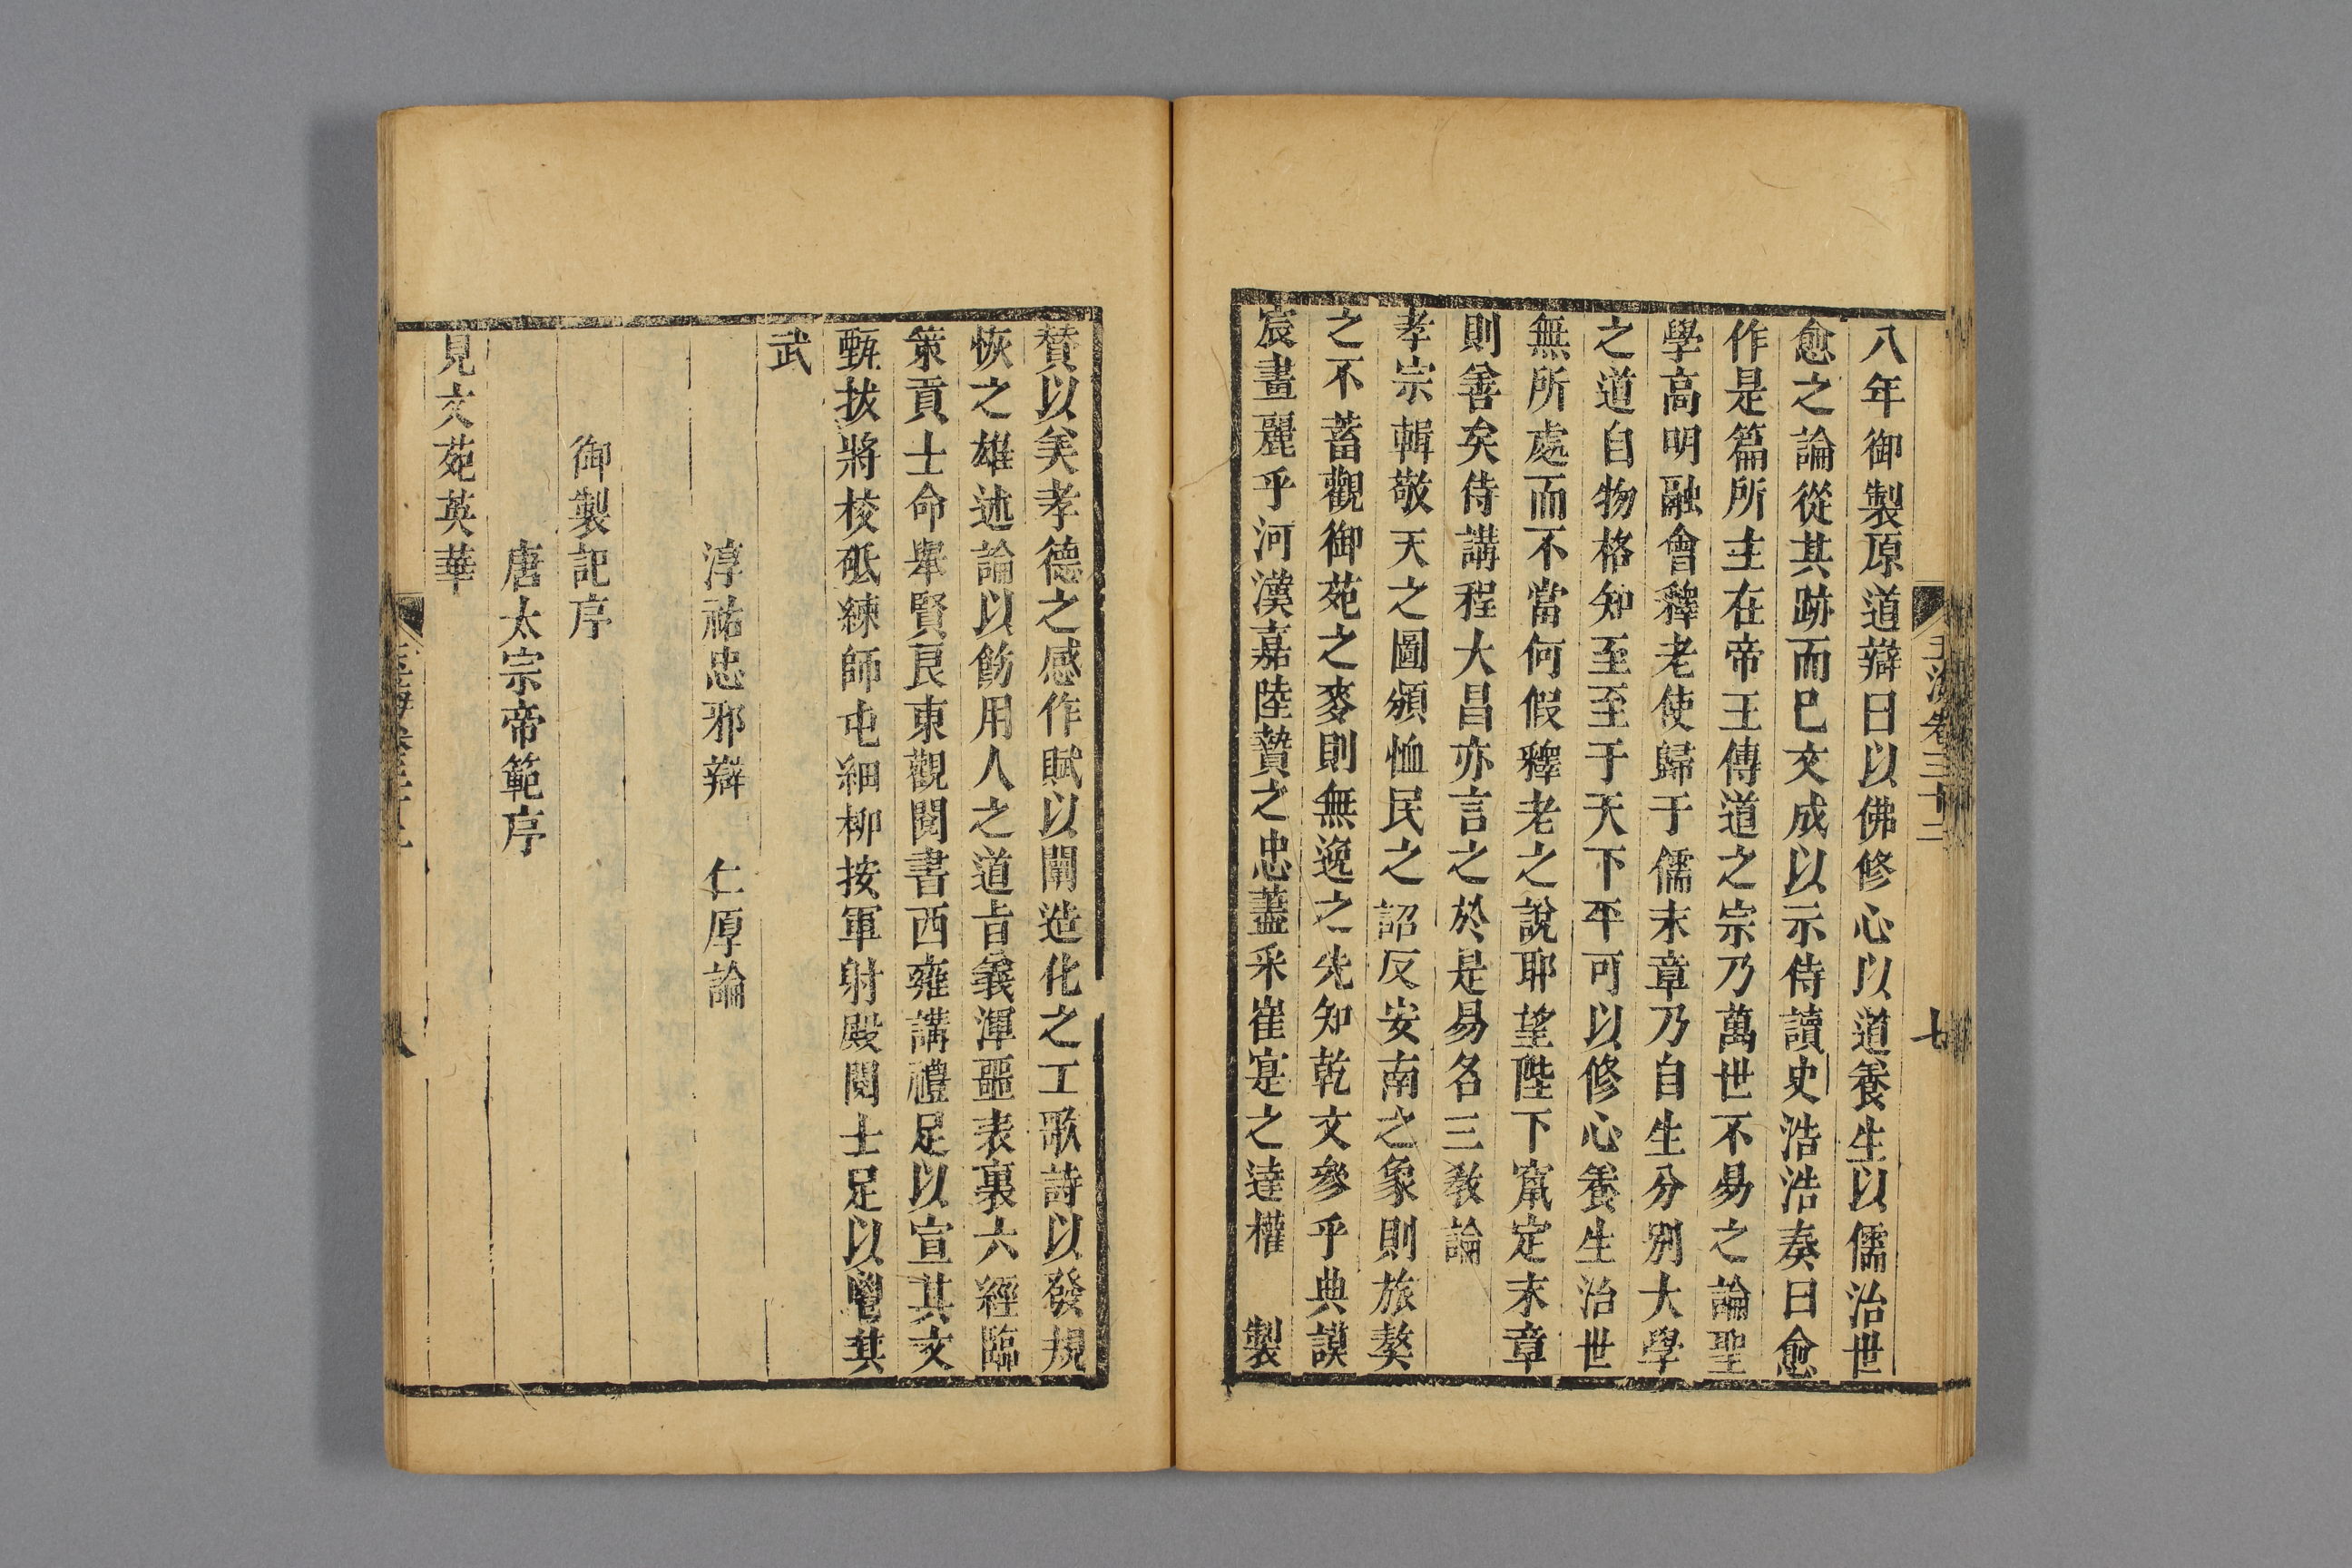 玉海卷三十二
七
八年御製原道辯曰以佛修心以道養生以儒治世
愈之論從其跡而已文成以示侍讀史浩浩奏曰愈
作是篇所主在帝王傳道之宗乃萬世不易之論聖
學高明融會釋老使歸于儒末章乃自生分別大學
之道自物格知至至于天下平可以修心養生治世
無所處而不當何假釋老之說耶望陛下竄定末章
則善矣侍講程大昌亦言之於是易名三教論
孝宗輯敬天之圖頒恤民之詔反安南之象則旅獒
之不蓄觀御苑之麥則無逸之先知乾文參乎典謨
宸畫麗乎河漢嘉陸贄之忠藎采崔寔之達權 製
贊以矣孝德之感作賦以闡造化之工歌詩以發規
恢之雄述論以飭用人之道旨義渾噩表裏六經臨
策貢士命舉賢良東觀閱書西雍講禮足以宣其文
甄拔將校砥練師屯細柳按軍射殿閱士足以鬯其
武
淳祐忠邪辯 仁厚論
御製記序
唐太宗帝範序
見文苑英華
八